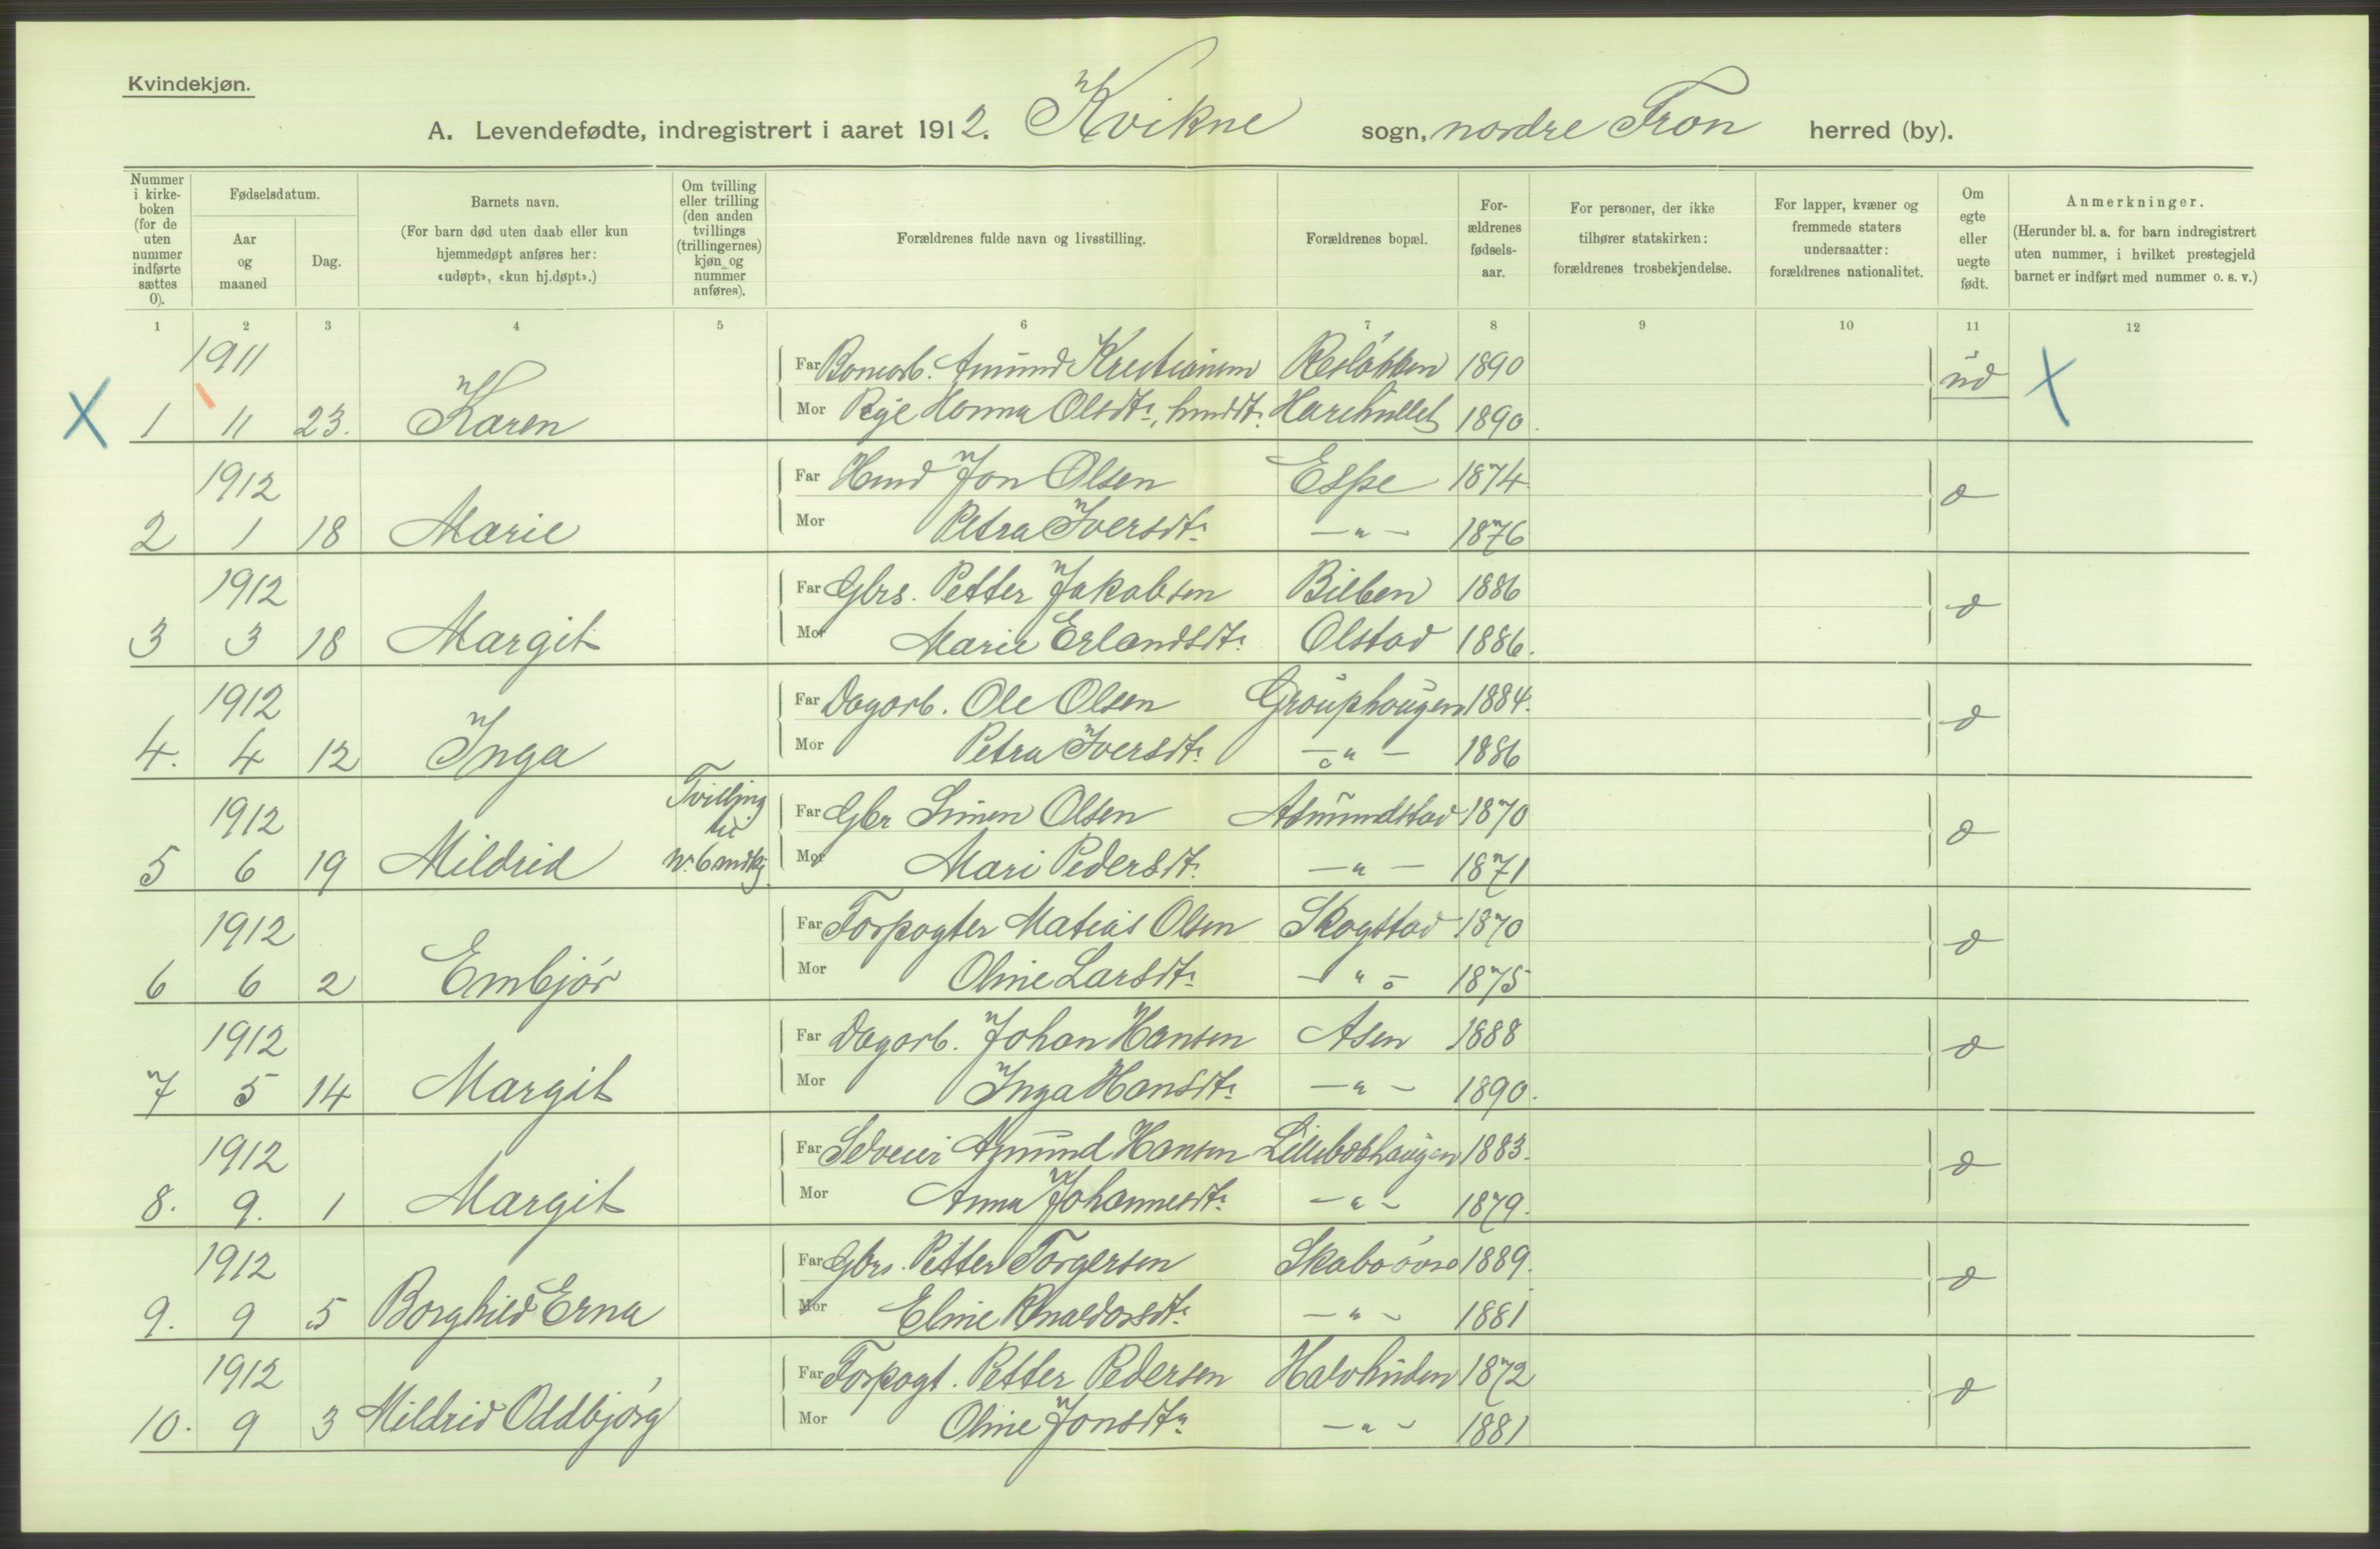 Kvindekjøn.
A. Levendefødte, indregistrert i aaret 1912. Kvikne sogn, nordre Fron herred (by).
Nummer i kirke-boken (for de uten nummer indførte sættes 0).
Fødselsdatum.
Aar og maaned
Dag.
Barnets navn.
(For barn død uten daab eller kun hjemmedøpt anføres her: «udøpt», «kun hj.døpt».)
Om tvilling eller trilling (den anden tvillings (trillingernes) kjøn og nummer anføres).
Forældrenes fulde navn og livsstilling.
Forældrenes bopæl.
For-ældrenes fødsels-aar.
For personer, der ikke tilhører statskirken: forældrenes trosbekjendelse.
For lapper, kvæner og fremmede staters undersaatter: forældrenes nationalitet.
Om egte eller uegte født.
Anmerkninger.
(Herunder bl. a. for barn indregistrert uten nummer, i hvilket prestegjeld barnet er indført med nummer o. s. v.)
1 2 3 4 5 6 7 8 9 10 11 12
1911 Far Amund Kristiansen 1890
X 1 11 23. Karen Mor Hanna Olsdtr. 1890. X
1912 Far Jon Olsen Espe 1874
2 1 18 Marie Mor Petra Iversdtr. — " — 1876
1912 Far Gbrs. Petter Jakobsen Bilben 1886
3 3 18 Margit Mor Marie Erlandsdtr. Olstad 1886.
1912 Far Dagarb. Ole Olsen Grouphougen 1884.
4. 4 12 Inga Mor Petra Iversdtr. — " — 1886
1912 Tvilling til Far Gbr Simen Olsen Asmundstad 1870
5 6 19 Mildrid nr. 6 mdkj. Mor Mari Pedersdtr. — " — 1871
1912 Far Forpagter Matias Olsen Skogstad 1870
6 6 2 Embjør Mor Oline Larsdtr. — " — 1875
1912 Far Dagarb. Johan Hansen Åsen 1888
7 5 14 Margit Mor Inga Hansdtr. — " — 1890.
1912 Far Selveier Amund Hansen 1883.
8. 9. 1 Margit Mor Anna Johannesdtr. — " — 1879.
1912 Far Gbrs. Petter Torgersen 1889.
9. 9 5 Borghild Erna Mor Eline — " — 1881
1912 Far Forpagt. Petter Pedersen 1872
10. 9 3 Mildrid Oddbjørg Mor Oline Jonsdtr. — " — 1881